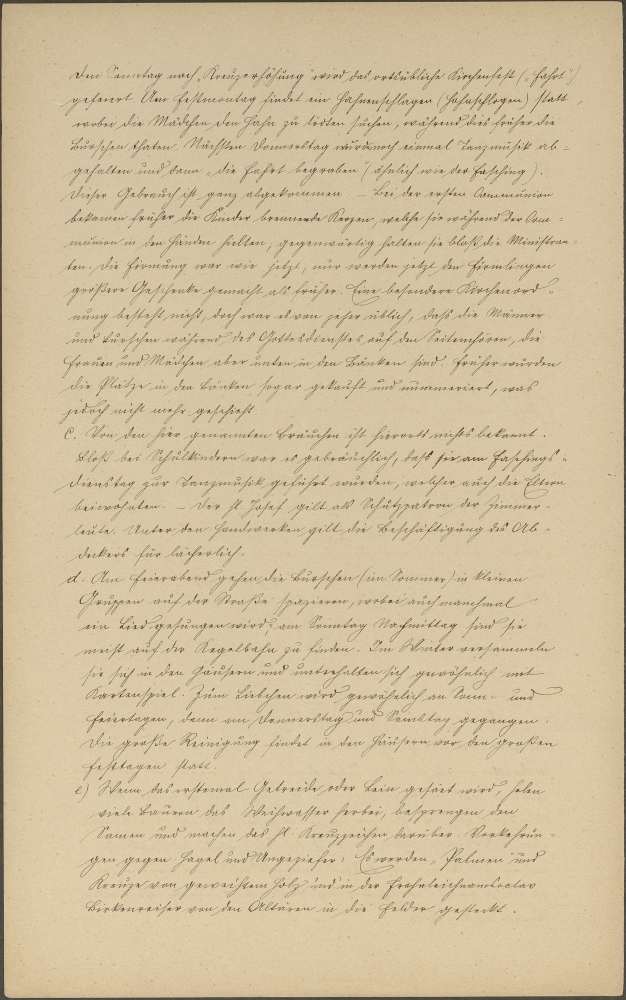 Den Sonntag nach „Kreuzerhöhung" wird das ortsübliche Kirchenfest („Fahrt")
gefeiert. Am Festmontag findet ein Hahnenschlagen (Hohnschlogen) statt,
wobei die Mädchen den Hahn zu tödten suchen, während dies früher die
Burschen thaten. Nächsten Donnerstag wurde noch einmal Tanzmusik ab-
gehalten und dann „die Fahrt begraben" (ähnlich wie der Fasching).
Dieser Gebrauch ist ganz abgekommen. – Bei der ersten Communion
bekamen früher die Kinder brennende Kerzen, welche sie während der Com-
munion in den Händen hielten, gegenwärtig halten sie bloß die Ministran-
ten. Die Firmung war wie jetzt, nur werden jetzt den Firmlingen
größere Geschenke gemacht, als früher. Eine besondere Kirchenord-
nung besteht nicht, doch war es von jeher üblich, daß die Männer
und Burschen während des Gottesdienstes auf den Seitenchören, die
Frauen und Mädchen aber unten in den Bänken sind. Früher wurden
die Plätze in den Bänken sogar gekauft und nummeriert, was
jedoch nicht mehr geschieht.
C. Von den hier genannten Bräuchen ist hierorts nichts bekannt.
Bloß bei Schulkindern war es gebräuchlich, daß sie am Faschings-
dienstag zur Tanzmusik geführt wurden, welcher auch die Eltern
beiwohnten. – Der hl. Josef gilt als Schutzpatron der Zimmer-
leute. Unter den Handwerken gilt die Beschäftigung des Ab-
deckers für lächerlich.
d. Am Feierabend gehen die Burschen (im Sommer) in kleinen
Gruppen auf der Straße spazieren, wobei auch manchmal
ein Lied gesungen wird; am Sonntag Nachmittag sind sie
meist auf der Kegelbahn zu finden. Im Winter versammeln
sie sich in den Häusern und unterhalten sich gewöhnlich mit
Kartenspiel. Zum Liebchen wird gewöhnlich an Sonn- und
Feiertagen, dann am Donnerstag und Samstag gegangen.
Die große Reinigung findet in den Häusern vor den großen
Festtagen statt.
e) Wenn das erstemal Getreide oder Lein gesäet wird, holen
viele Bauern das Weihwasser herbei, besprengen den
Samen und machen das hl. Kreuzzeichen darüber. Vorkehrun-
gen gegen Hagel und Ungeziefer: Es werden „Palmen" und
Kreuze von geweihtem Holz und in der Frohnleichnamsoctav
Birkenreiser von den Altären in die Felder gesteckt.